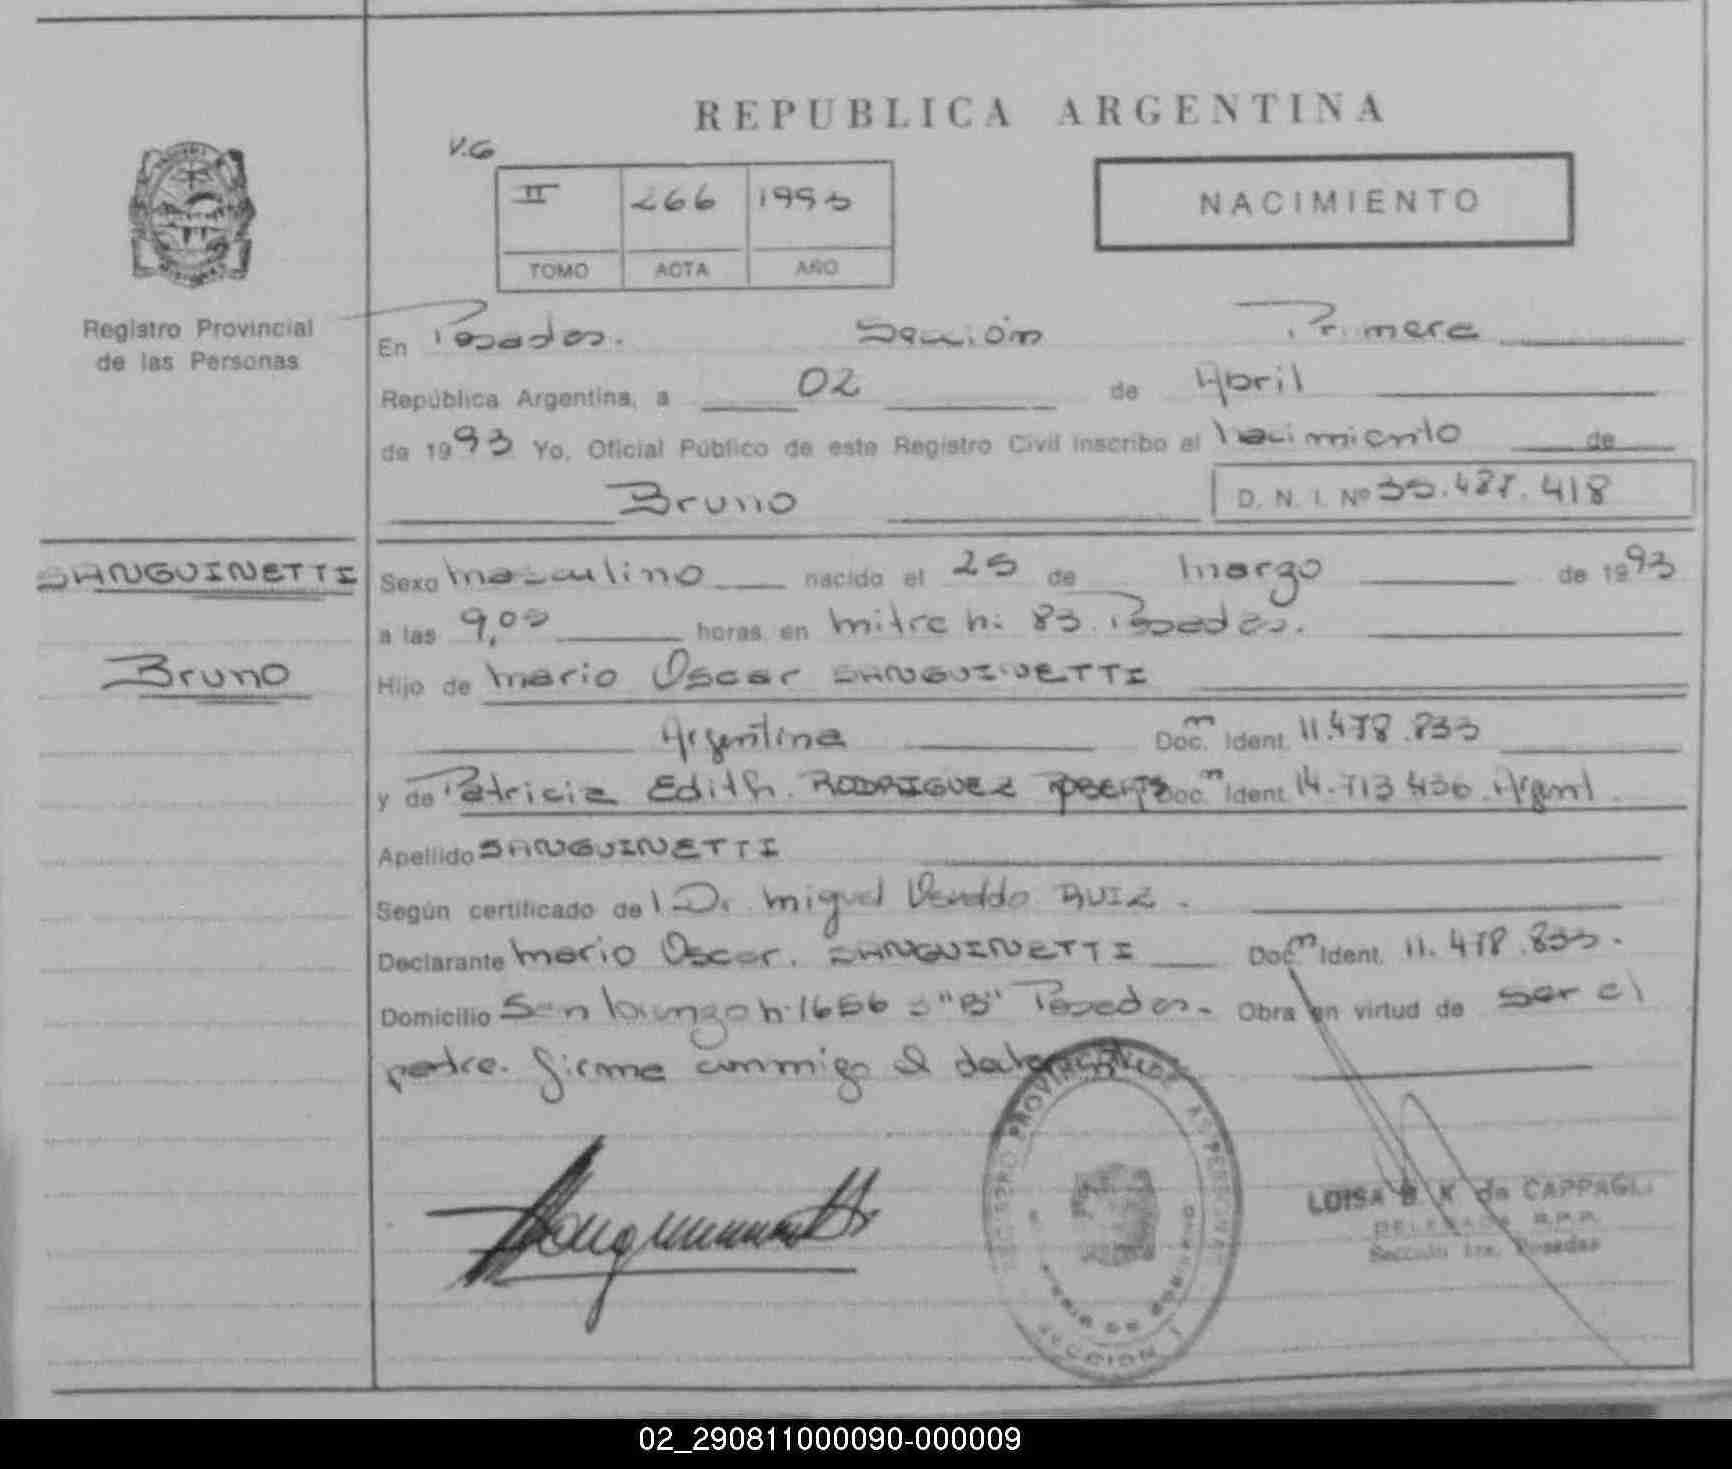 REPUBLICA ARGENTINA
V.G
II 266 1993
TOMO ACTA AÑO
NACIMIENTO
Registro Provincial
de las Personas
En Posadas. Sección Primera
República Argentina, a 02 de Abril
de 1993 Yo, Oficial Público de este Registro Civil inscribo el Nacimiento de
Bruno D. N. I. Nº
SANGUINETTI
Bruno
Sexo masculino nacido el 25 de marzo de 1993
a las 9,00 horas en mitre n: 83. Posadas.
Hijo de Mario Oscar SANGUINETTI
Argentina Doc. m Ident. 11.478.833
y de Patricia Edith RODRIGUEZ ROBERTS Doc. m Ident. 14.713.436 Argent.
Apellido SANGUINETTI
Según certificado del Dr. Miguel RUIZ.
Declarante Mario Oscar. SANGUINETTI Doc. m Ident. 11.478.833.
Domicilio San n. 1656 "B" Posadas. Obra en virtud de ser el
padre. Firma conmigo el
REGISTRO PROVINCIAL DE LAS PERSONAS
SECCION 1
LUISA B K de CAPPAGLI
DELEGADA R.P.P.
Sección 1ra. Posadas
02_290811000090-000009